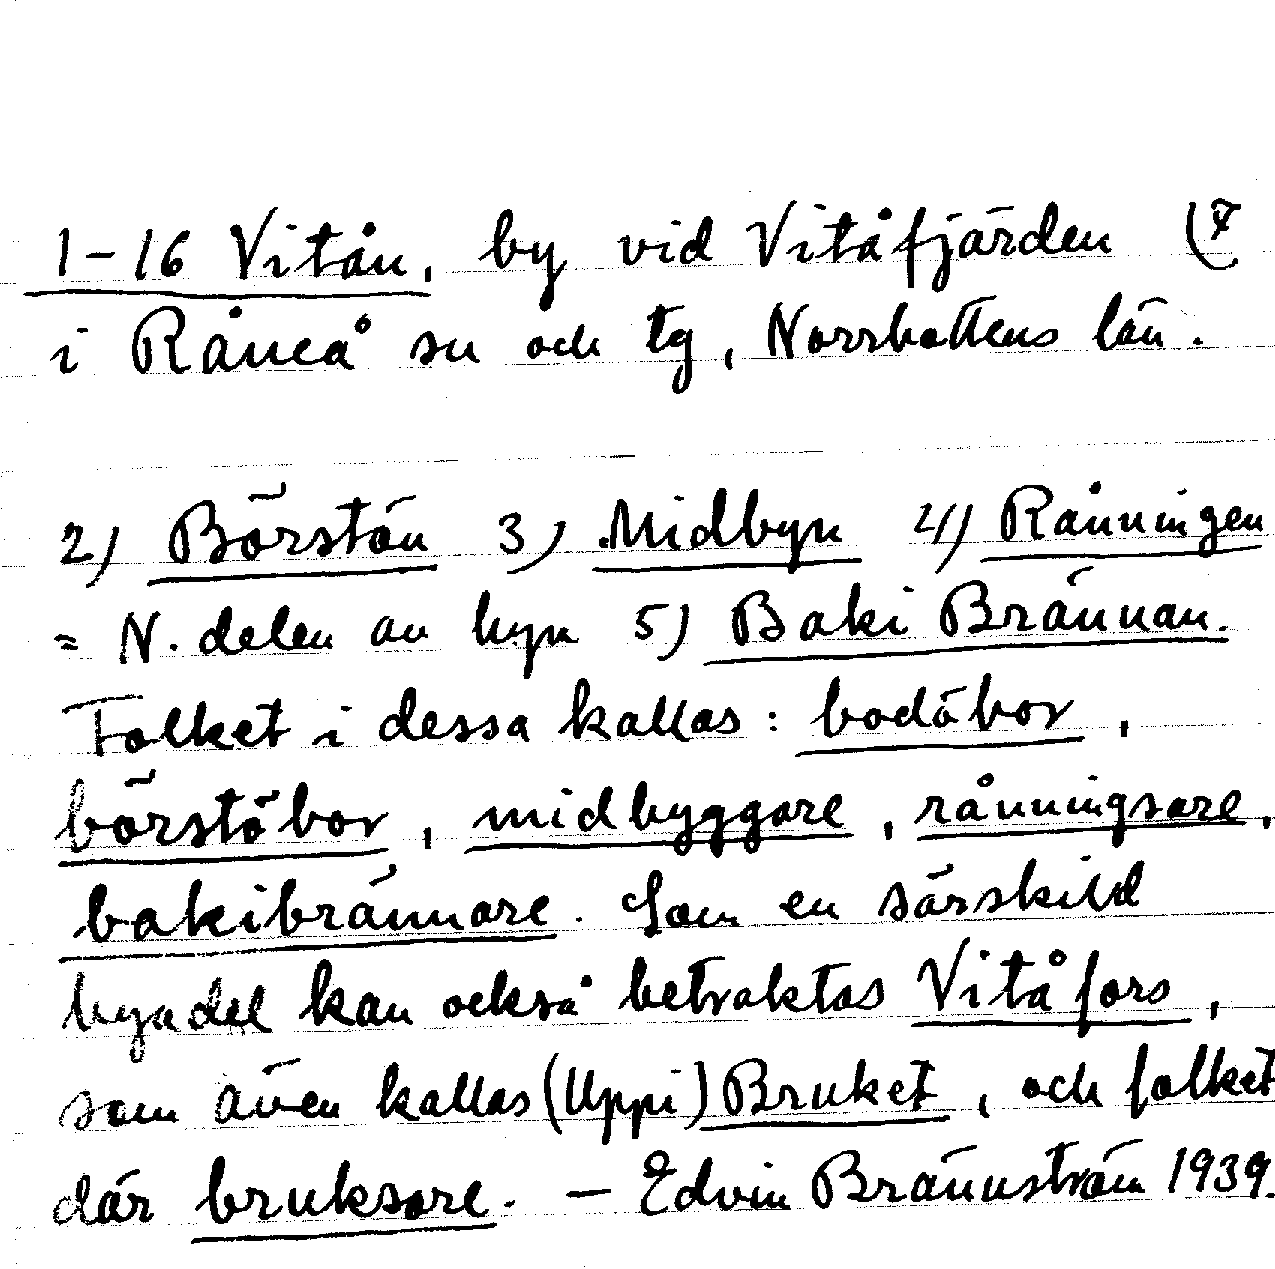 1-16 Vitån, by vid Vitåfjärden
i Råneå sn och tg, Norrbottens län.
2) Börstön 3) Midbyn 4) Rånningen
= N. delen av byn 5) Baki Brännan.
Folket i dessa kallas: bodöbor,
börstöbor, midbyggare, rånningsare,
bakibrännare. Som en särskild
byadel kan också betraktas Vitåfors,
som även kallas (Uppi) Bruket, och folket
där bruksare. - Edvin Brännström 1939.